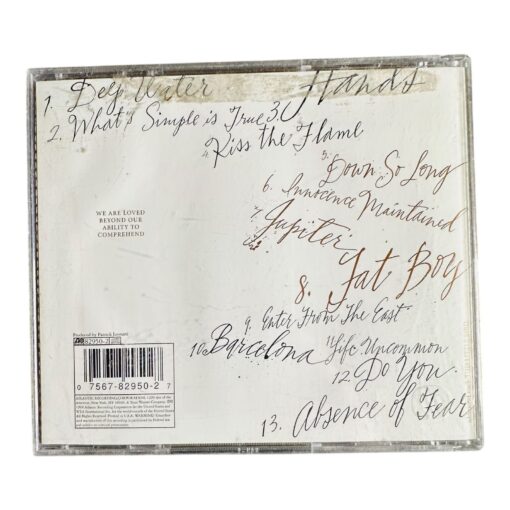 1. Deep Water
Hands
2. What's Simple is True 3.
4. Kiss the Flame
5. Down So Long
6. Innocence Maintained
7. Jupiter
8. Fat Boy
9. Enter From The East
10. Barcelona 11. Life Uncommon
12. Do You
13. Absence of Fear
WE ARE LOVED
BEYOND OUR
ABILITY TO
COMPREHEND
Produced by Patrick Leonard
82950-2
0 7567-82950-2 7